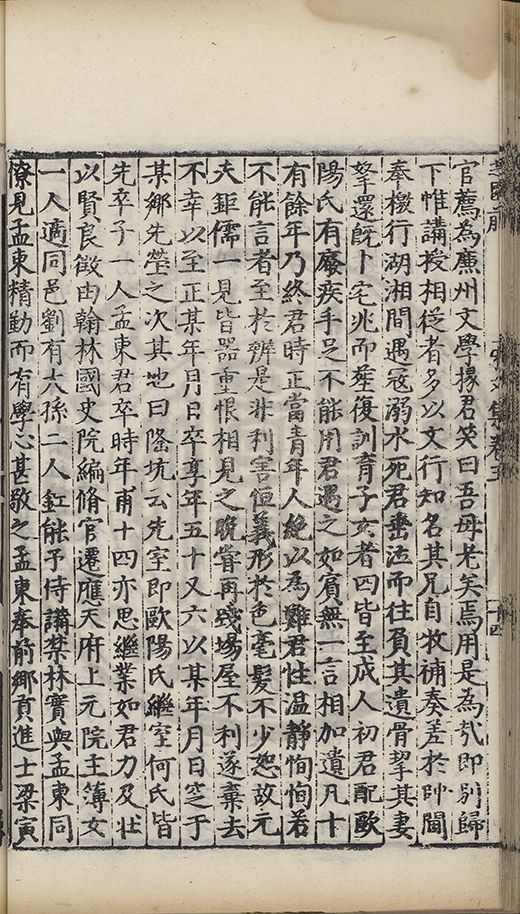 官薦為廉州文學掾君笑曰吾母老矣焉用是為哉即別歸
下惟講授相從者多以文行知名其兄自牧補奏差於帥閫
奉檄行湖湘間遇寇溺水死君垂泣而往負其遺骨挈其妻
孥還旣卜宅兆而塟復訓育子女者四皆至成人初君配歐
陽氏有廢疾手足不能用君遇之如賓無一言相加遺凡十
有餘年乃終君時正當青年人絶以為難君性温靜恂恂若
不能言者至於辨是非利害恒義形於色毫髮不少恕故元
夫鉅儒一見皆器重恨相見之晚甞再踐塲屋不利遂棄去
不幸以至正某年月日卒享年五十又六以某年月日窆于
某鄉先塋之次其地曰隆坑云先室即歐陽氏繼室何氏皆
先卒子一人孟東君卒時年甫十四亦思繼業如君力及壯
以賢良徵由翰林國史院編脩官遷應天府上元院主簿女
一人適同邑劉有大孫二人釭能予侍講禁林實與孟東同
僚見孟東精勤而有學心甚敬之孟東奉前鄉貢進士梁寅